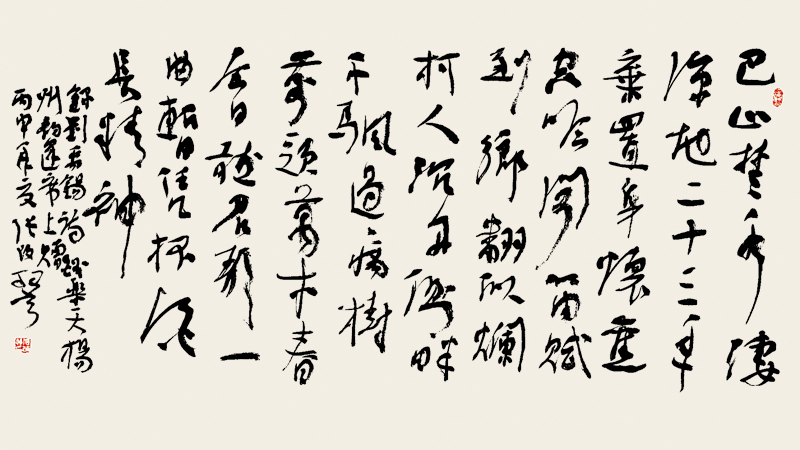 巴山楚水凄
涼地二十三年
棄置身懷舊
空吟闻笛賦
到鄉翻似爛
柯人沉舟側畔
千颿過病樹
前頭萬木春
今日聽君歌一
曲暫凭杯酒
長精神
錄劉禹錫詩酬樂天揚
州初逢席上
丙申年夏張改琴